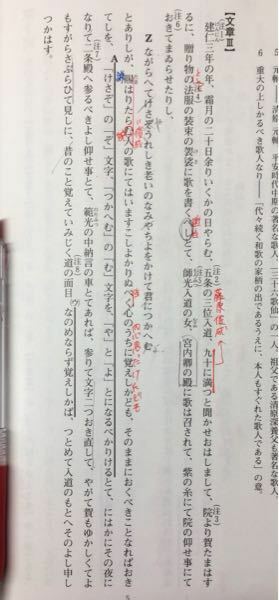 5 元輔――清原元輔。平安時代中期の著名な歌人。「三十六歌仙」の一人。祖父である清原深養父も著名な歌人。
6 重大の上しかるべき歌人なり――「代々続く和歌の家柄の出であるうえに、本人もすぐれた歌人である」の意。
【文章Ⅲ】
建仁三年の年、霜月の二十日余りいくかの日やらむ、五条の三位入道、九十に満つと聞かせおはしまして、院より賀たまはす
るに、贈り物の法服の装束の袈裟に歌を書くべしとて、師光入道の女、宮内卿の殿に歌は召されて、紫の糸にて院の仰せ事にて
おきてまゐらせたりし、
Z ながらへてけさぞうれしき老いのなみやちよをかけて君につかへむ
とありしが、賜はりたらむ人の歌にてはいますこしよかりぬべく心のうちに覚えしかども、そのままにおくべきことなればおき
てしを、「けさぞ」の「ぞ」文字、「つかへむ」の「む」文字を、「や」と「よ」とになるべかりけるとて、にはかにその夜に
なりて二条殿へ参るべきよし仰せ事とて、範光の中納言の車とてあれば、参りて文字二つおき直して、やがて賀もゆかしくてよ
もすがらさぶらひて見しに、昔のこと覚えていみじく道の面目、なのめならず覚えしかば、つとめて入道のもとへそのよし申し
つかはす。
藤原俊成